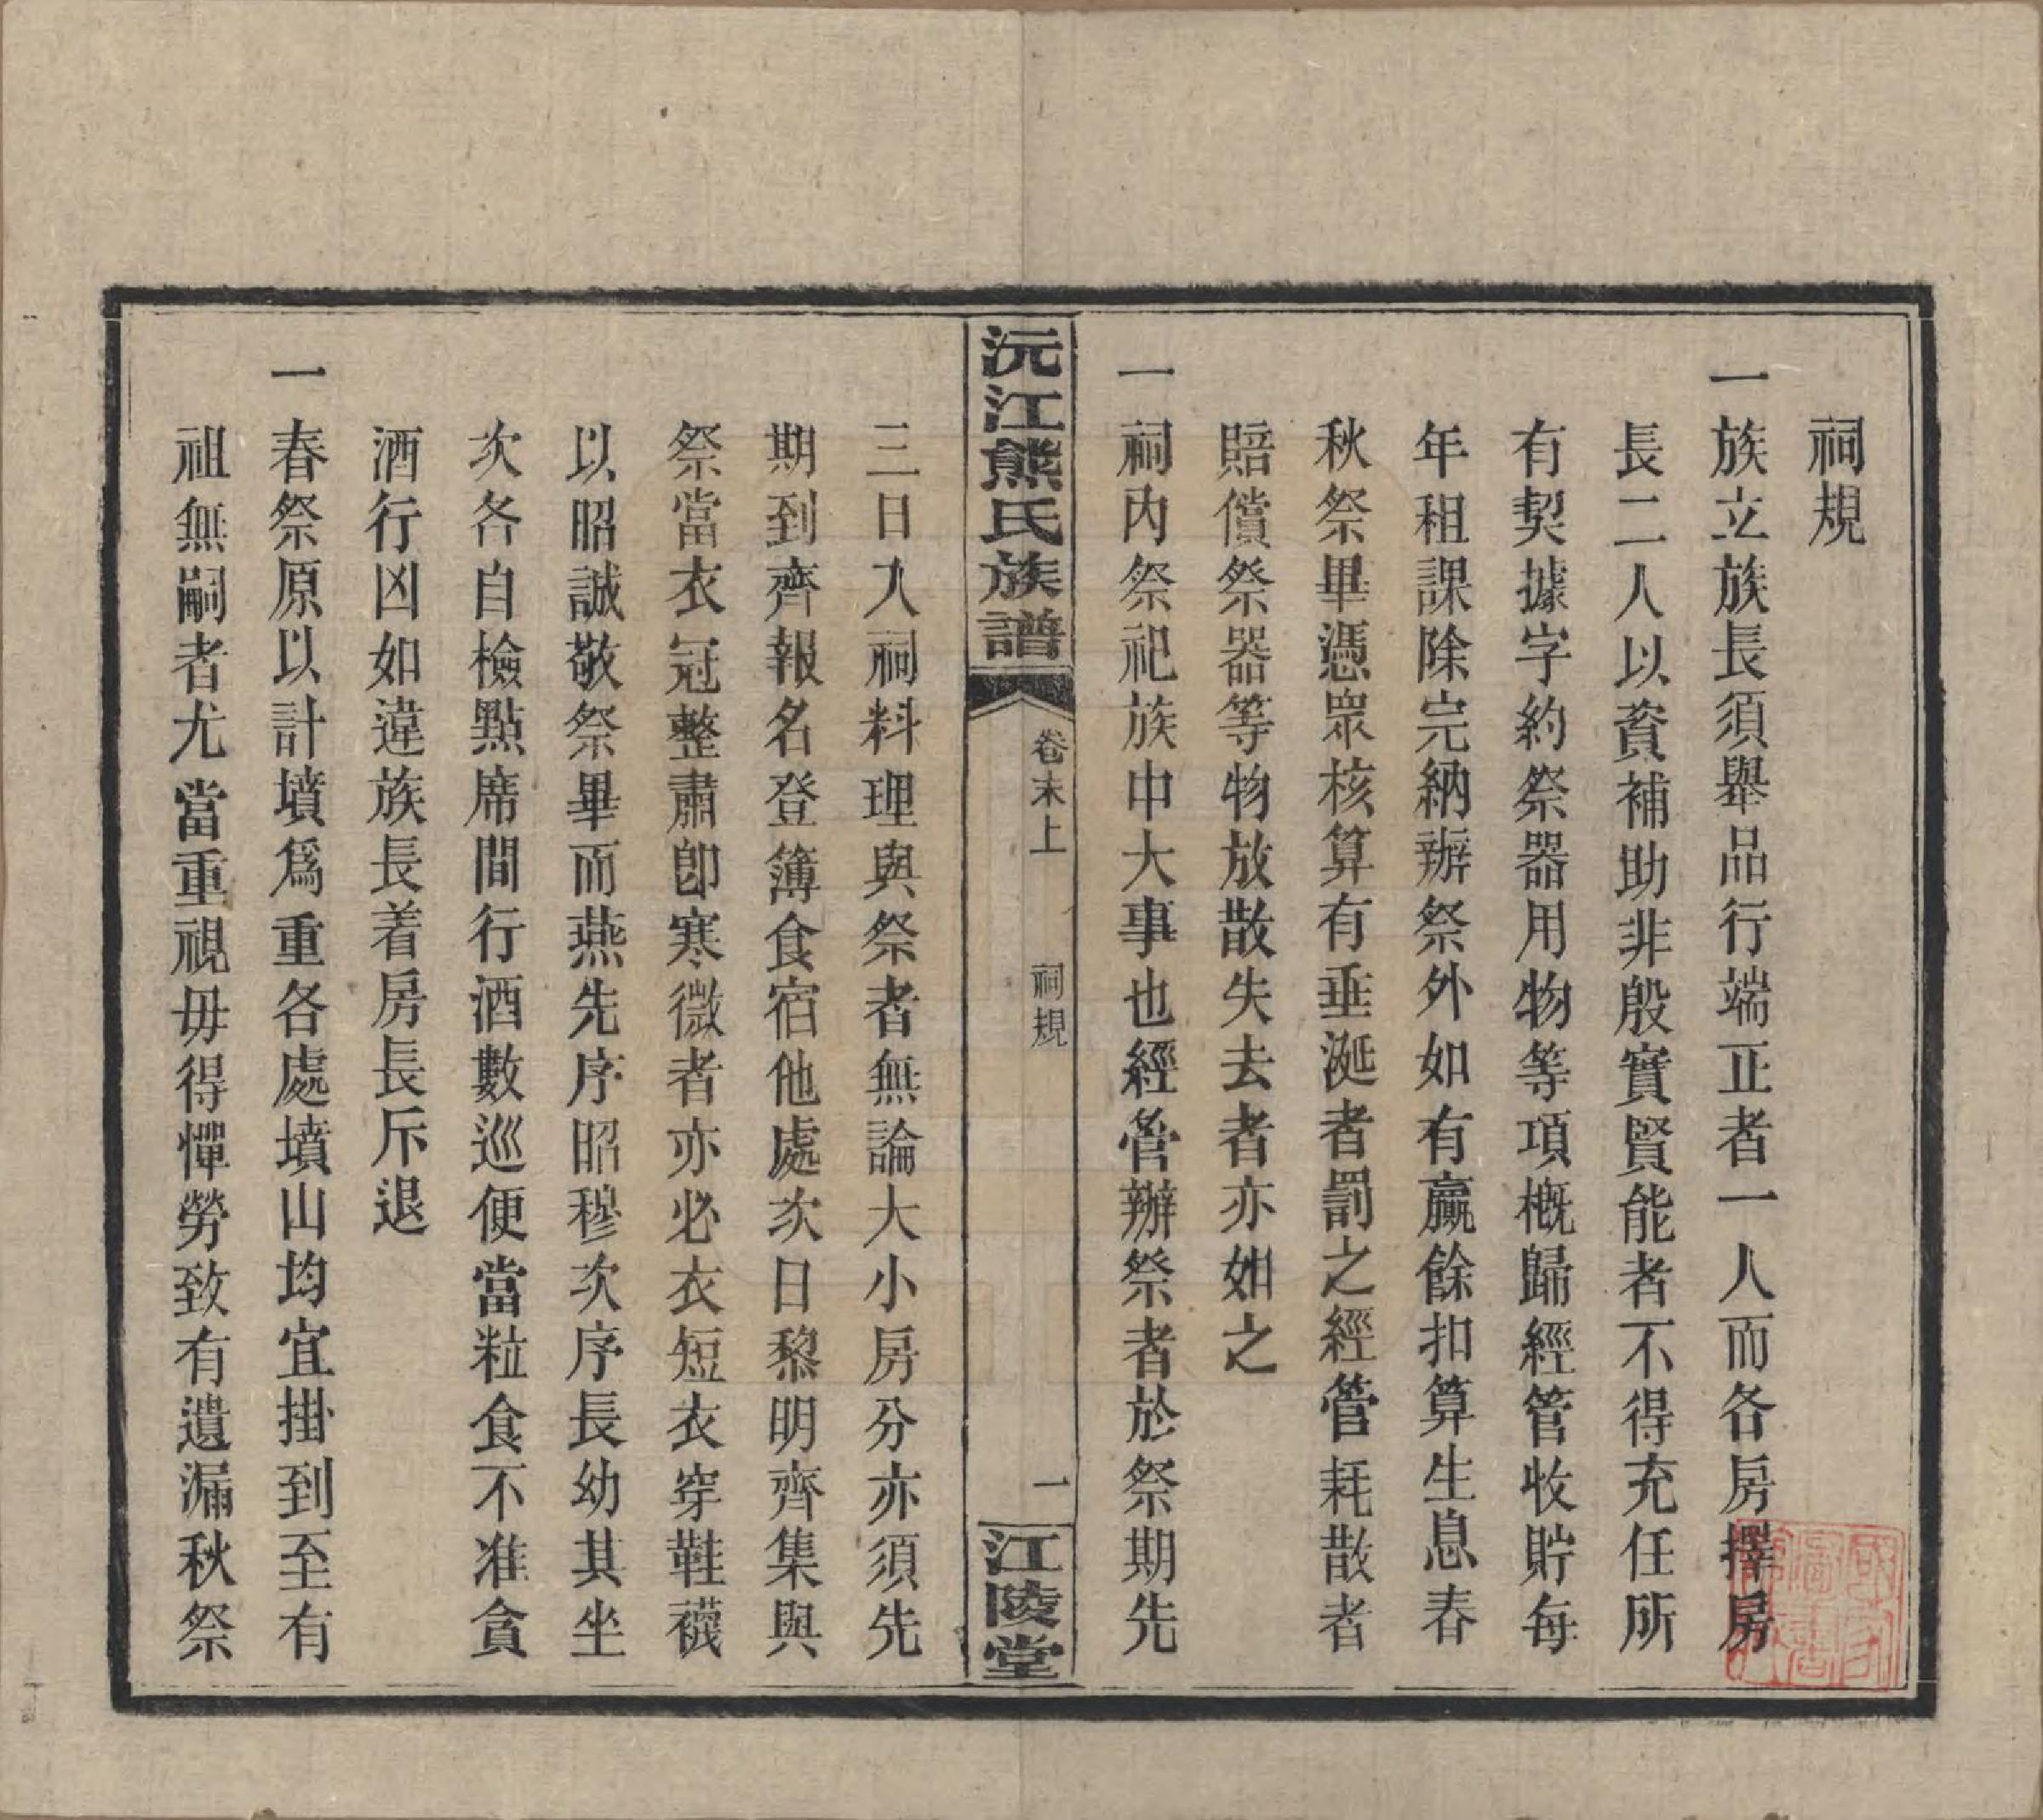 祠規
一族立族長須舉品行端正者一人而各房擇房
長二人以資補助非殷實賢能者不得充任所
有契據字約祭器用物等項概歸經管收貯每
年租課除完納辦祭外如有贏餘扣算生息春
秋祭畢憑眾核算有垂涎者罰之經管耗散者
賠償祭器等物放散失去者亦如之
一祠內祭祀族中大事也經管辦祭者於祭期先
沅江熊氏族譜
卷末上
祠規
一
江陵堂
三日入祠料理與祭者無論大小房分亦須先
期到齊報名登簿食宿他處次日黎明齊集與
祭當衣冠整肅卽寒微者亦必衣短衣穿鞋襪
以昭誠敬祭畢而燕先序昭穆次序長幼其坐
次各自檢點席間行酒數巡便當粒食不准貪
酒行凶如違族長着房長斥退
一春祭原以計墳爲重各處墳山均宜掛到至有
祖無嗣者尤當重視毋得憚勞致有遺漏秋祭